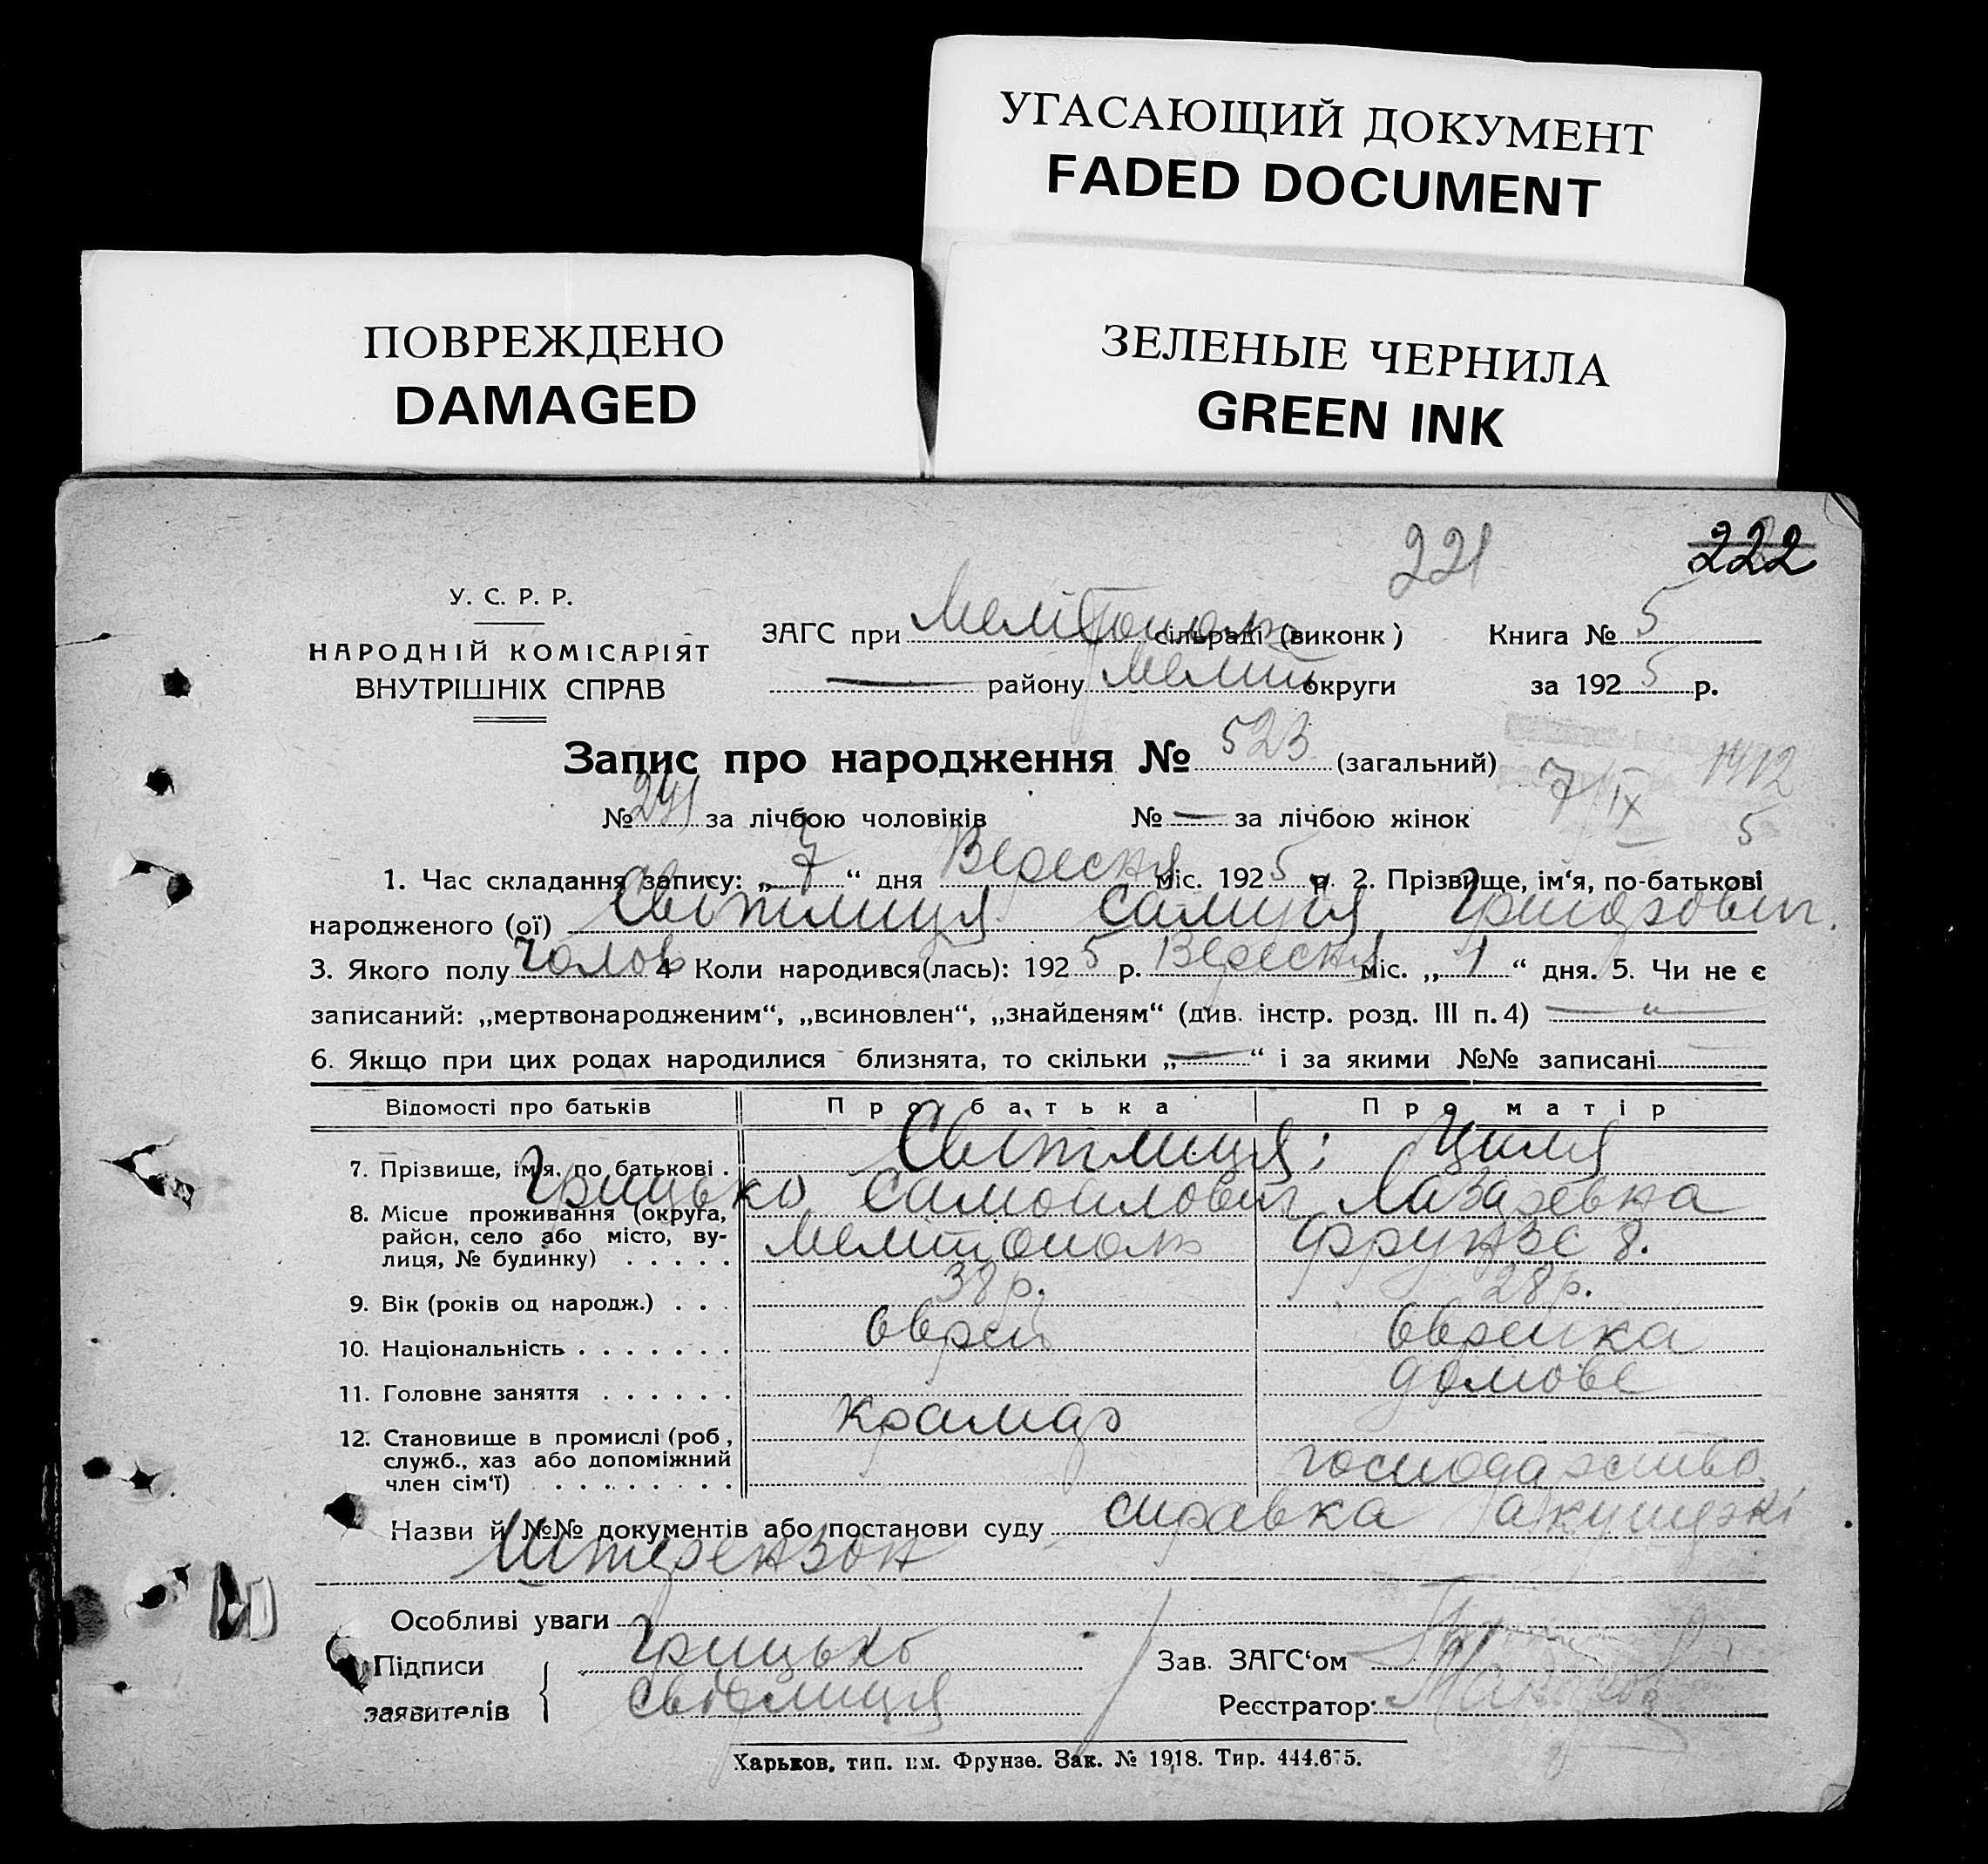 УГАСАЮЩИЙ ДОКУМЕНТ
FADED DOCUMENT
ПОВРЕЖДЕНО
DAMAGED
ЗЕЛЕНЫЕ ЧЕРНИЛА
GREEN INK
221 222
У. С. Р. Р.
НАРОДНІЙ КОМІСАРІЯТ
ВНУТРІШНІХ СПРАВ
ЗАГС при Мелітополь сільраді (виконк) Книга № 5
— району Меліт округи за 1925 р.
Запис про народження № 523 (загальний)
№ 291 за лічбою чоловіків № — за лічбою жінок
7/IX 1412
5
1. Час складання запису: „7“ дня Вересня міс. 1925 р. 2. Прізвище, ім‘я, по-батькові
народженого (ої) Світлиця Григорович
3. Якого полу Чолов 4 Коли народився(лась): 1925 р. Вересня міс. „1“ дня. 5. Чи не є
записаний: „мертвонародженим“, „всиновлен“, „знайденям“ (див. інстр. розд. III п. 4) — „ —
6. Якщо при цих родах народилися близнята, то скільки „—“ і за якими №№ записані
Відомості про батьків Про батька Про матір
7. Прізвище, ім‘я. по батькові . Світлиця; Циля
Грицько Самойлович Лазаревна
8. Місце проживання (округа, район, село або місто, вулиця, № будинку) . . . . . Мелітополь Фрунзе 8.
9. Вік (років од народж.) . . . 38 р. 28 р.
10. Національність . . . . . . . Єврей Єврейка
11. Головне заняття . . . . . . крамар домове
12. Становище в промислі (роб, служб., хаз або допоміжний член сім‘ї) . . . . . . . . господарство
Назви й №№ документів або постанови суду справка акушеркі
Штерензон
Особливі уваги
Підписи заявителів { Грицько
Світлиця
Зав. ЗАГС‘ом
Реєстратор:
Харьков, тип. им. Фрунзе. Зак. № 1918. Тир. 444.675.